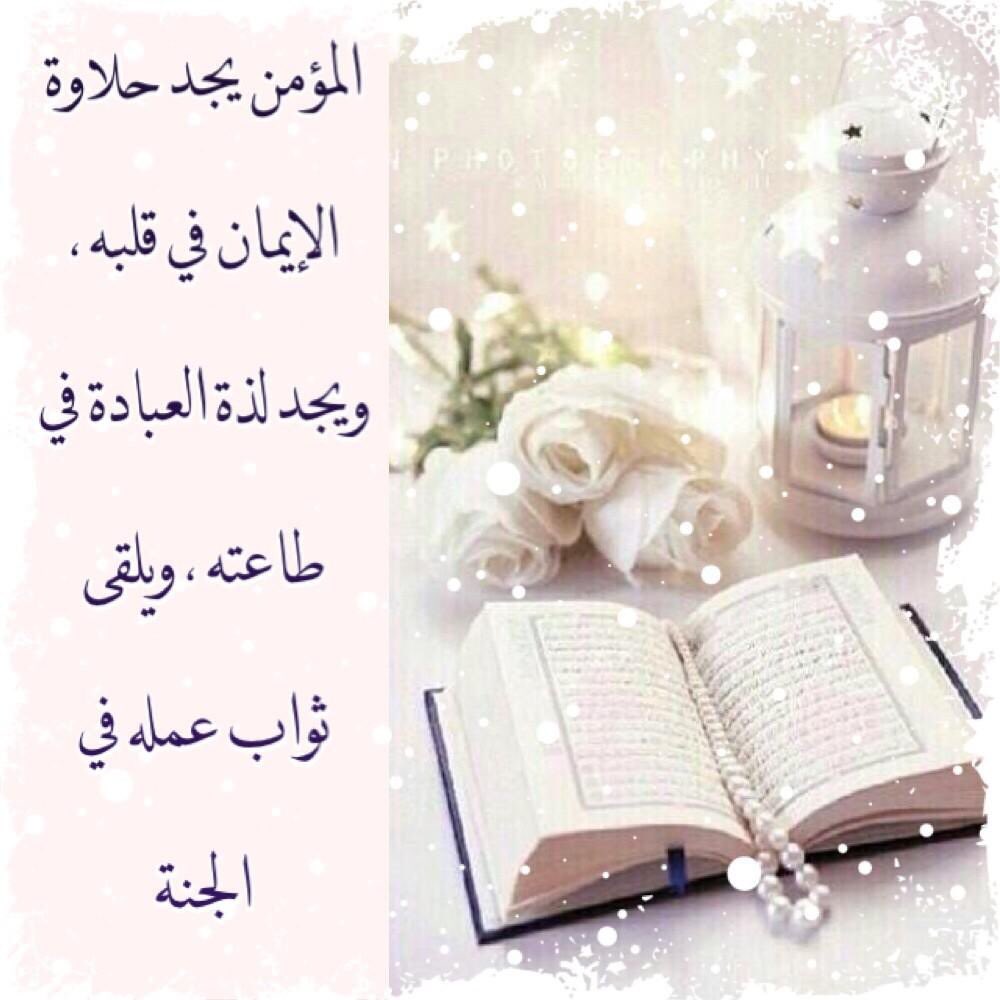 المؤمن يجد حلاوة
الإيمان في قلبه ،
ويجد لذة العبادة في
طاعته ، ويلقى
ثواب عمله في
الجنة
N PHOTOGRAPHY